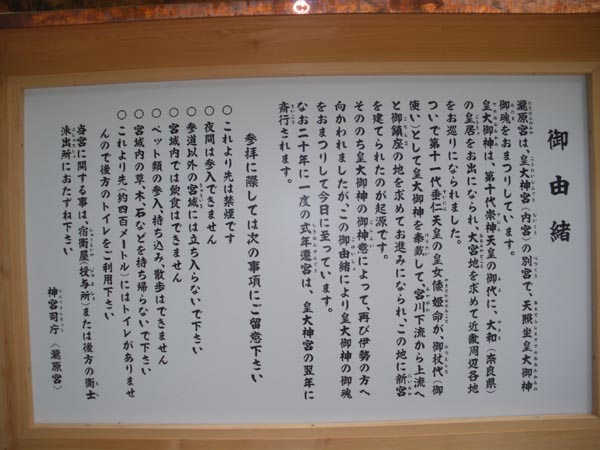 御由緒
瀧原宮は、皇大神宮（内宮）の別宮で、天照坐皇大御神
御魂をおまつりしています。
皇大御神は、第十代崇神天皇の御代に、大和（奈良県）
の皇居をお出になられ、大宮地を求めて近畿周辺各地
をお巡りになられました。
ついで第十一代垂仁天皇の皇女倭姫命が御杖代（御
使い）として皇大御神を奉戴して、宮川下流から上流へ
と御鎮座の地を求めてお進みになられ、この地に新宮
を建てられたのが起源です。
そののち皇大御神の御神意によって、再び伊勢の方へ
向かわれましたが、この御由緒により皇大御神の御魂
をおまつりして今日に至っています。
なお二十年に一度の式年遷宮は、皇大神宮の翌年に
斎行されます。
参拝に際しては次の事項にご留意下さい
○これより先は禁煙です
○夜間は参入できません
○参道以外の宮域には立ち入らないで下さい
○宮域内では飲食はできません
○ペット類の参入、持ち込み、散歩はできません
○宮域内の草、木、石などを持ち帰らないで下さい
○これより先（約四百メートル）にはトイレがありませ
んので後方のトイレをご利用下さい
当宮に関する事は、宿衛屋（授与所）または後方の衛士
派出所におたずね下さい
神宮司庁〈瀧原宮〉